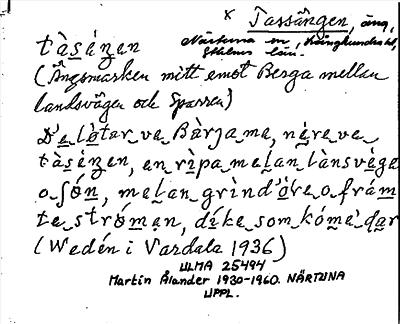 x Tassängen, äng,
Närtuna sn, Långhundra hd,
Sthlms län.
tàséŋen
(Ängsmarken mitt emot Berga mellan
landsvägen och Sparren)
D'e lòtar va Bàrjame, nére ve
tàséŋen, en rìpa melan lànsvége
o ʃøn, melan grìnd'öre o fràm
te strömen, dìke som kómé dar
(Wedén i Vardala 1936)
ULMA 25494
Martin Ålander 1930-1960. NÄRTUNA
UPPL.